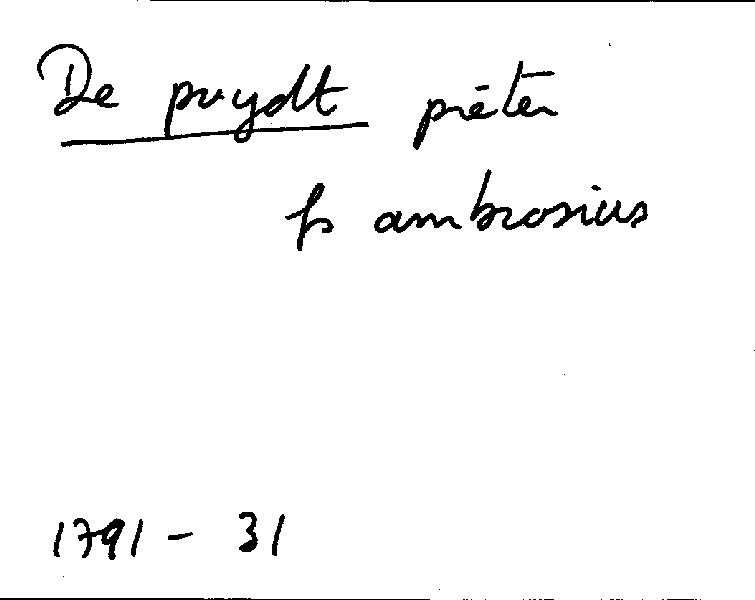 De puydt pieter
fs ambrosius
1791 - 31